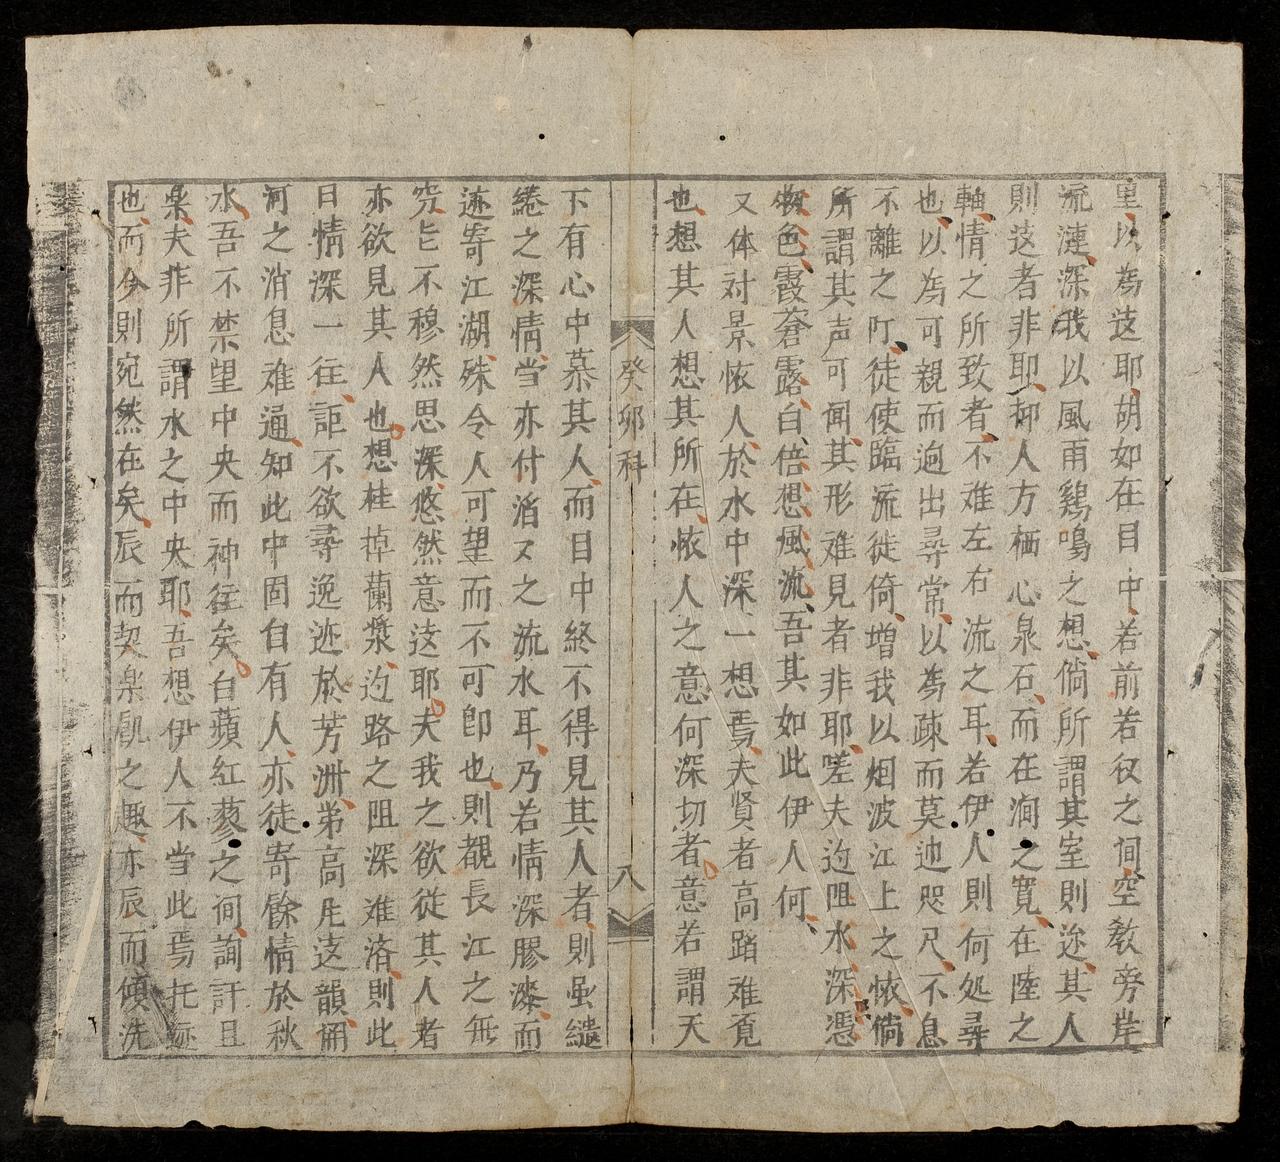 里以為这耶胡如在目中若前若後之间空教旁岸
流漣深我以風雨鷄鳴之想倘所謂其室則迩其人
則这者非耶抑人方栖心泉石而在澗之寬在陸之
軸情之所致者不难左右流之耳若伊人則何処尋
也以為可親而逈出尋常以為疎而莫迪咫尺不息
不離之下徒使臨流徙倚增我以烟波江上之懷倘
所謂其声可闻其形难見者非耶嗟夫迩阻水深憑
物色霞蒼露白倍想風流吾其如此伊人何
又体対景懷人於水中深一想焉夫賢者高踏难覓
也想其人想其所在懷人之意何深切者意若謂天
癸卯科
八
下有心中慕其人而目中終不得見其人者則虽繾
綣之深情当亦付滔〻之流水耳乃若情深膠漆而
迹寄江湖殊令人可望而不可即也則覩長江之無
究㠯不穆然思深悠然意这耶夫我之欲從其人者
亦欲見其人也想桂棹蘭漿迩路之阻深难済則此
日情深一往詎不欲尋逸迹於芳洲弟高㞢这韻爾
河之消息难通知此中固自有人亦徒寄餘情於秋
水吾不禁望中央而神往矣白蘋紅蓼之间詢訐且
楽夫非所謂水之中央耶吾想伊人不当此焉托迹
也而今則宛然在矣辰而契楽飢之趣亦辰而傾洗